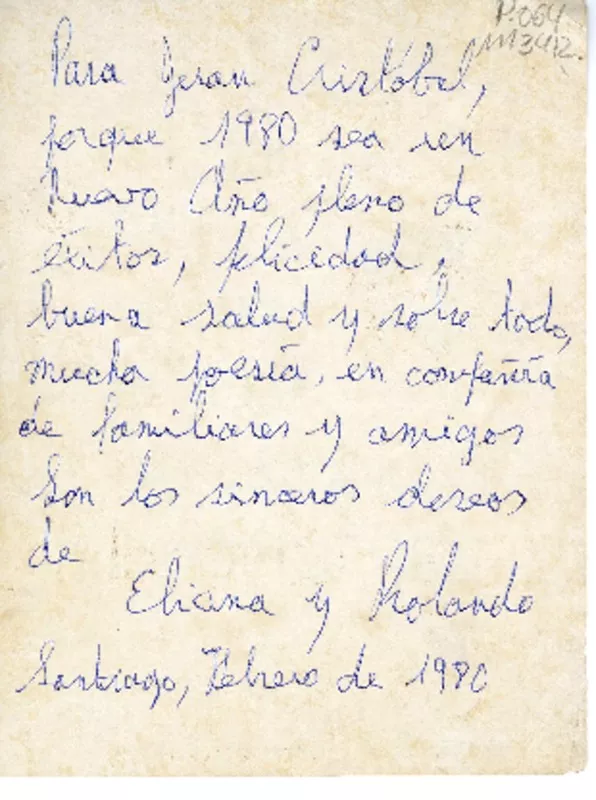 P.064
M3412
Para Juan Cristóbal,
porque 1980 sea un
Nuevo Año pleno de
éxitos, felicidad,
buena salud y sobre todo,
mucha poesía, en compañía
de familiares y amigos
Son los sinceros deseos
de
Eliana y Rolando
Santiago, Febrero de 1980